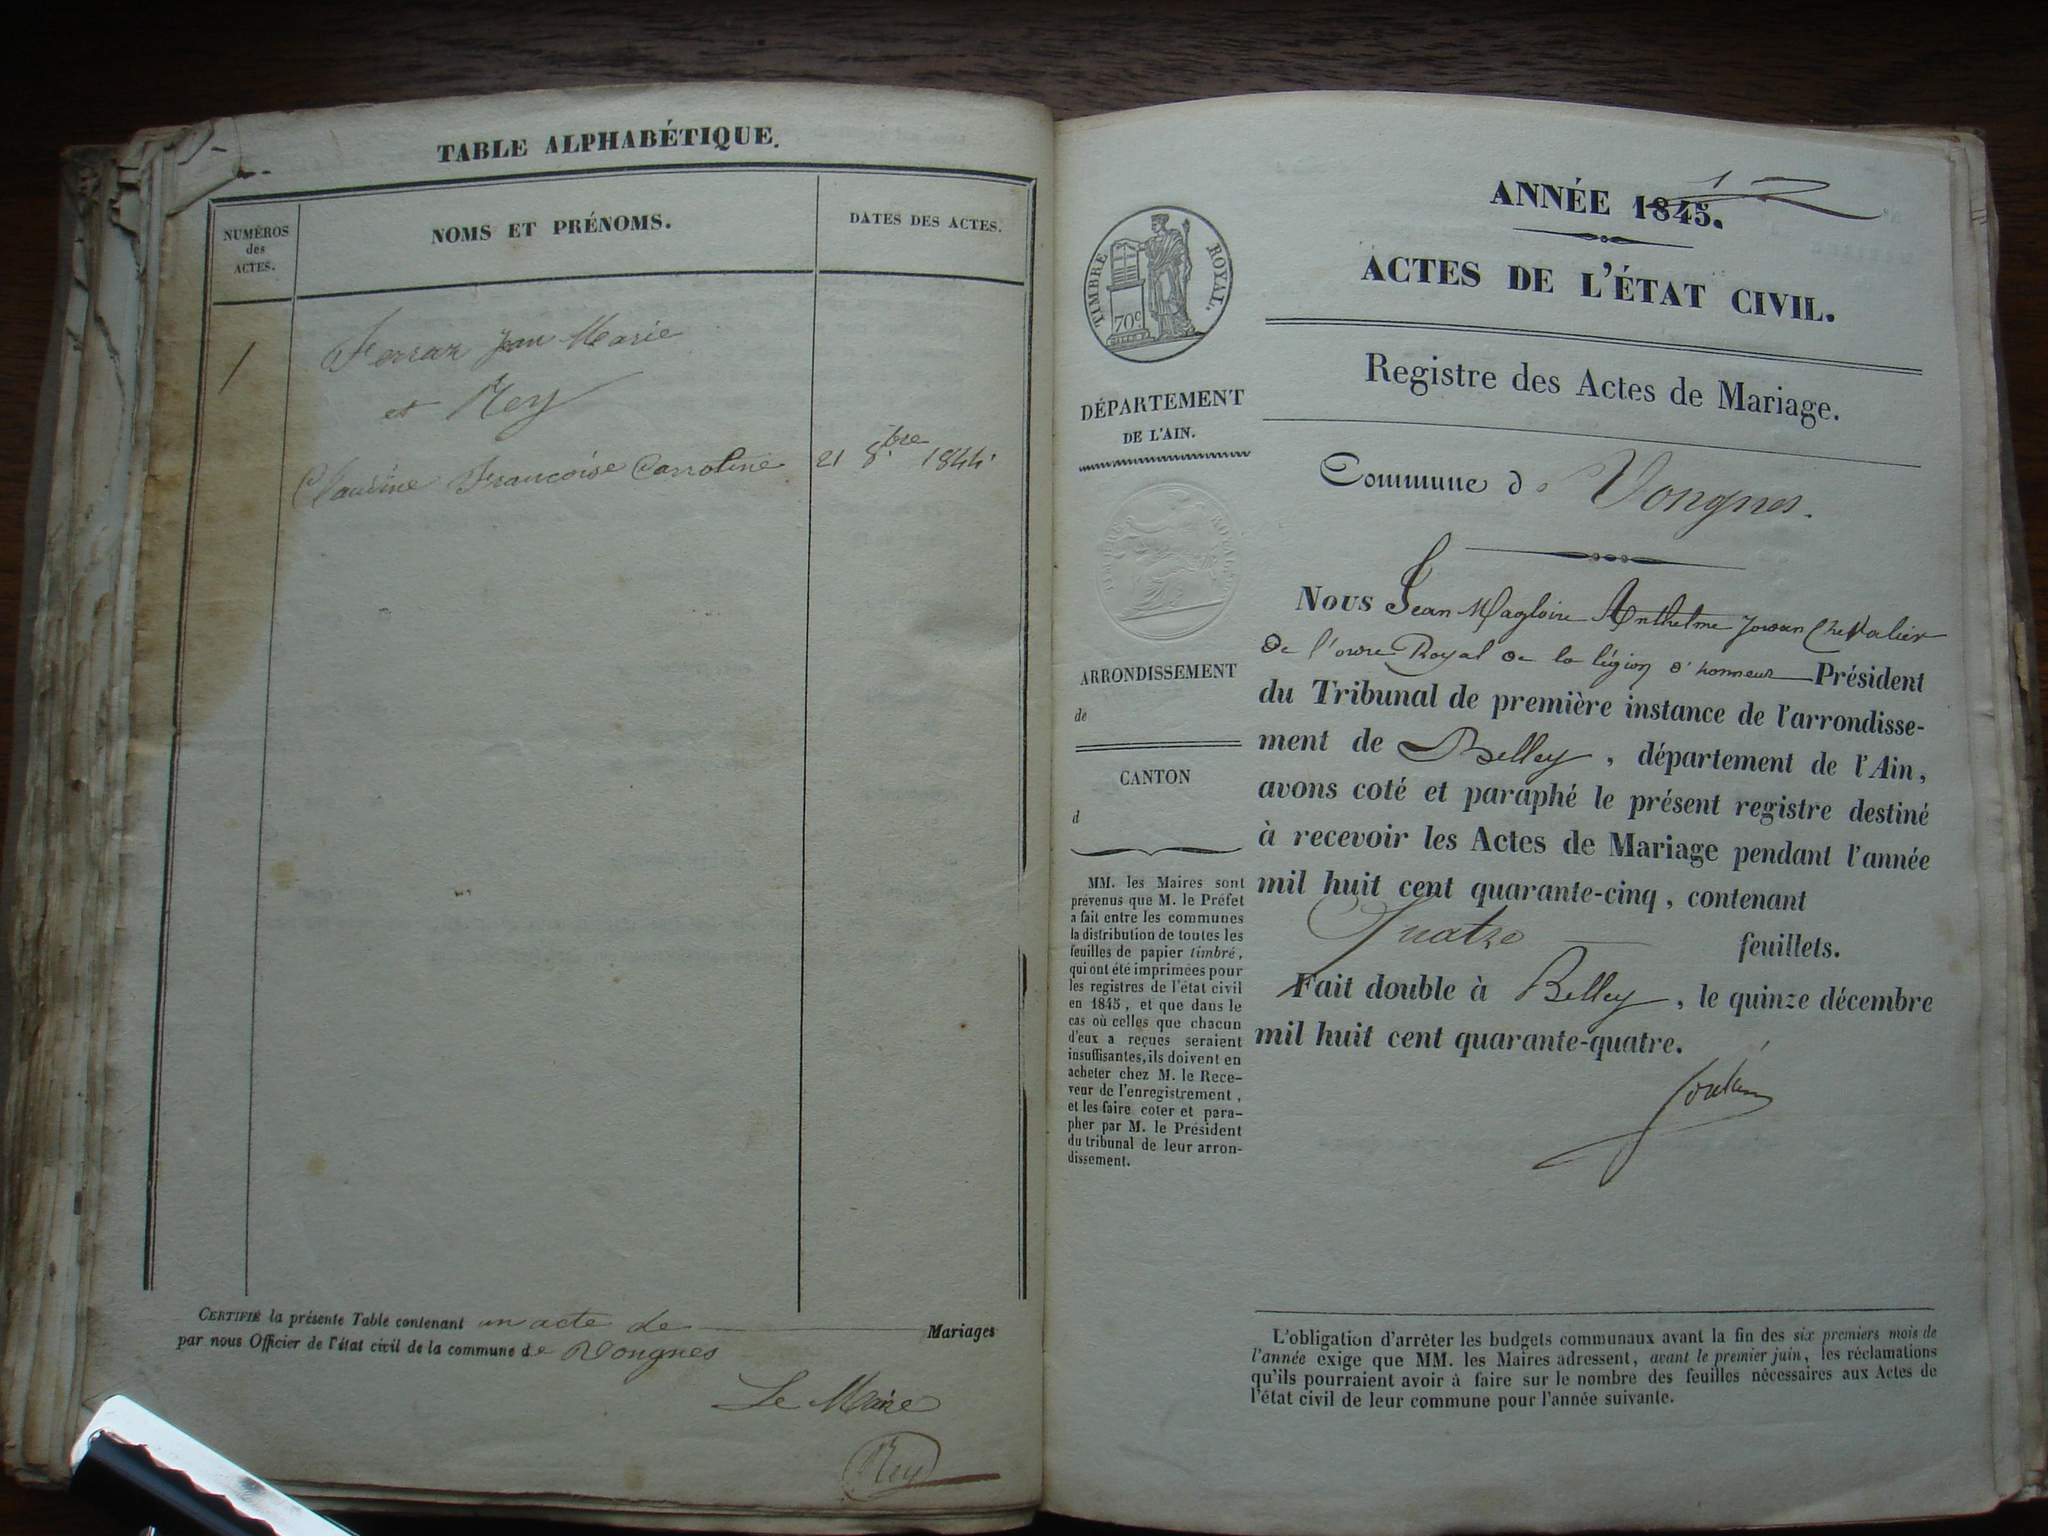 TABLE ALPHABÉTIQUE.
NUMÉROS
des
ACTES.
NOMS ET PRÉNOMS.
DATES DES ACTES.
1
Ferraz Jean Marie
et Rey
Claudine Francoise Carroline
21 8.bre 1844.
CERTIFIÉ la présente Table contenant un acte de Mariages
par nous Officier de l'état civil de la commune de Vongnes
Le Maire
Rey
ANNÉE 1845.
ACTES DE L'ÉTAT CIVIL.
TIMBRE ROYAL.
70c
Registre des Actes de Mariage.
DÉPARTEMENT
DE L'AIN.
Commune de Vongnes.
TIMBRE ROYAL
ARRONDISSEMENT
de
CANTON
d
MM. les Maires sont
prévenus que M. le Préfet
a fait entre les communes
la distribution de toutes les
feuilles de papier timbré,
qui ont été imprimées pour
les registres de l'état civil
en 1845, et que dans le
cas où celles que chacun
d'eux a reçues seraient
insuffisantes, ils doivent en
acheter chez M. le Rece-
veur de l'enregistrement,
et les faire coter et para-
pher par M. le Président
du tribunal de leur arron-
dissement.
Nous Jean Magloire Anthelme Jordan Chevalier
de l'ordre Royal de la légion d'honneur Président
du Tribunal de première instance de l'arrondisse-
ment de Belley, département de l'Ain,
avons coté et paraphé le présent registre destiné
à recevoir les Actes de Mariage pendant l'année
mil huit cent quarante-cinq, contenant
Quatre feuillets.
Fait double à Belley, le quinze décembre
mil huit cent quarante-quatre.
Jordan
L'obligation d'arrêter les budgets communaux avant la fin des six premiers mois de
l'année exige que MM. les Maires adressent, avant le premier juin, les réclamations
qu'ils pourraient avoir à faire sur le nombre des feuilles nécessaires aux Actes de
l'état civil de leur commune pour l'année suivante.